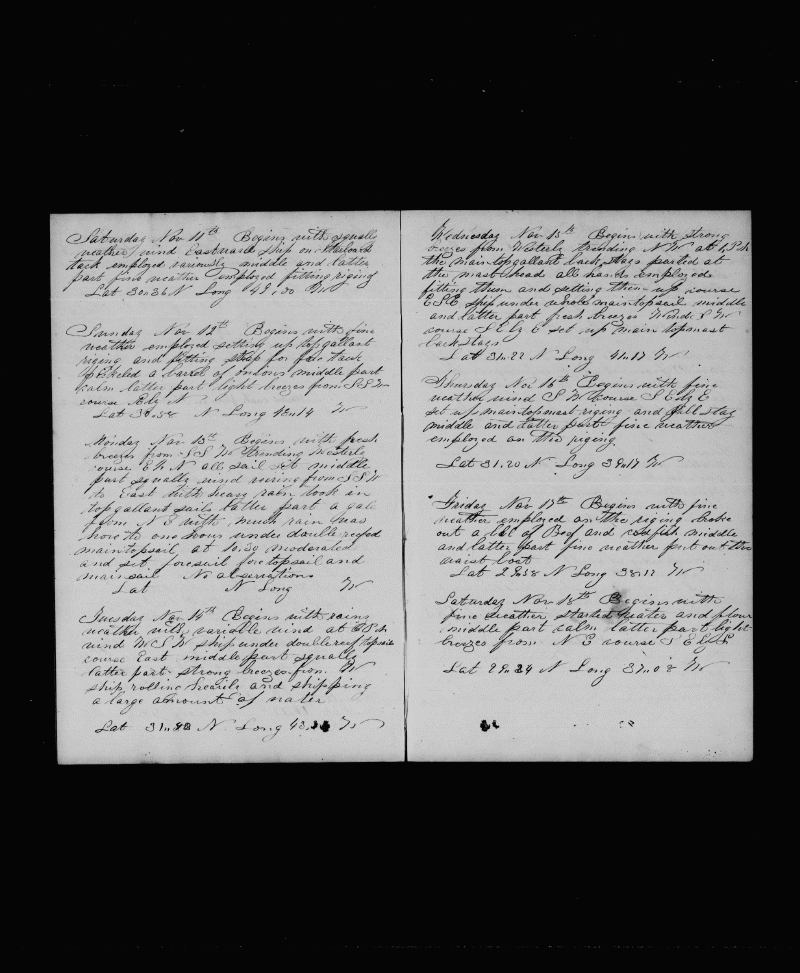 Saturday Nov 11th Begins with squally
weather wind Eastward ship on starboard
tack employed variously middle and latter
part fine weather employed fitting riging
Lat 30..36 N Long 49..30 W
Sunday Nov 12th Begins with fine
weather employed setting up topgallant
riging and fitting strap for fore tack
a barrel of onions middle part
calm latter part light breezes from SSW
course N
Lat N Long 48..14 W
Monday Nov 13th Begins with fresh
breezes from SSW trending westerly
course E N all sail set middle
part squally wind veering from SSW
to East with heavy rain took in
topgallant sails latter part a gale
from NE with much rain was
hove to one hours under double reefed
maintopsail at 10.30 moderated
and set foresail foretopsail and
mainsail No observations
Lat N Long W
Tuesday Nov 14th Begins with rainy
weather with variable wind at
wind WSW ship under double reef topsails
course East middle part squally
latter part strong breezes from W
ship rolling heavily and shipping
a large amount of water
Lat N Long W
Wednesday Nov 15th Begins with strong
breezes from Westerly trending NW at
the maintopgallant back stays parted at
the masthead all hands employed
fitting them and setting them up course
ESE ship under whole maintopsail middle
and latter part fresh breezes Wind SW
course SE by E set up main topmast
backstays
Lat 31..22 N Long 41..17 W
Thursday Nov 16th Begins with fine
weather wind SW course SE by E
set up maintopmast riging and stay
middle and latter part fine weather
employed on the riging
Lat 31.20 N Long 39..17 W
Friday Nov 17th Begins with fine
weather employed on the riging broke
out a bbl of Beef and codfish middle
and latter part fine weather put out the
waist boat
Lat 29..58 N Long 38..12 W
Saturday Nov 18th Begins with
fine weather started water and flour
middle part calm latter part light
breezes from NE course SE by S
Lat 29..34 N Long 37..08 W